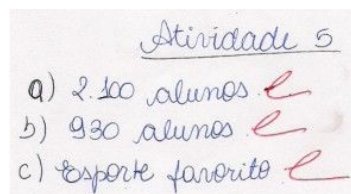 Atividade 5
a) 2.100 alunos.
b) 930 alunos.
c) Esporte favorito